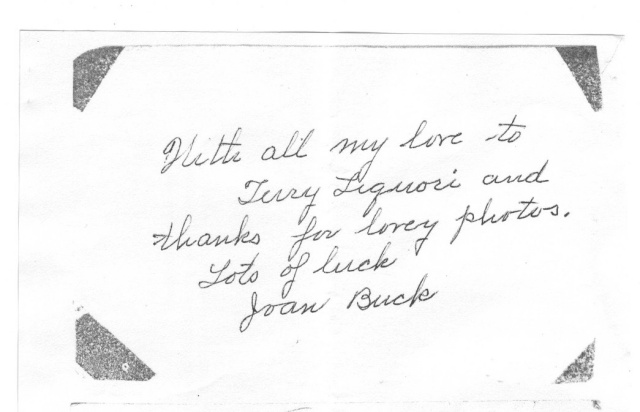 With all my love to
Terry Liguori and
thanks for lovey photos.
Lots of luck
Joan Buck